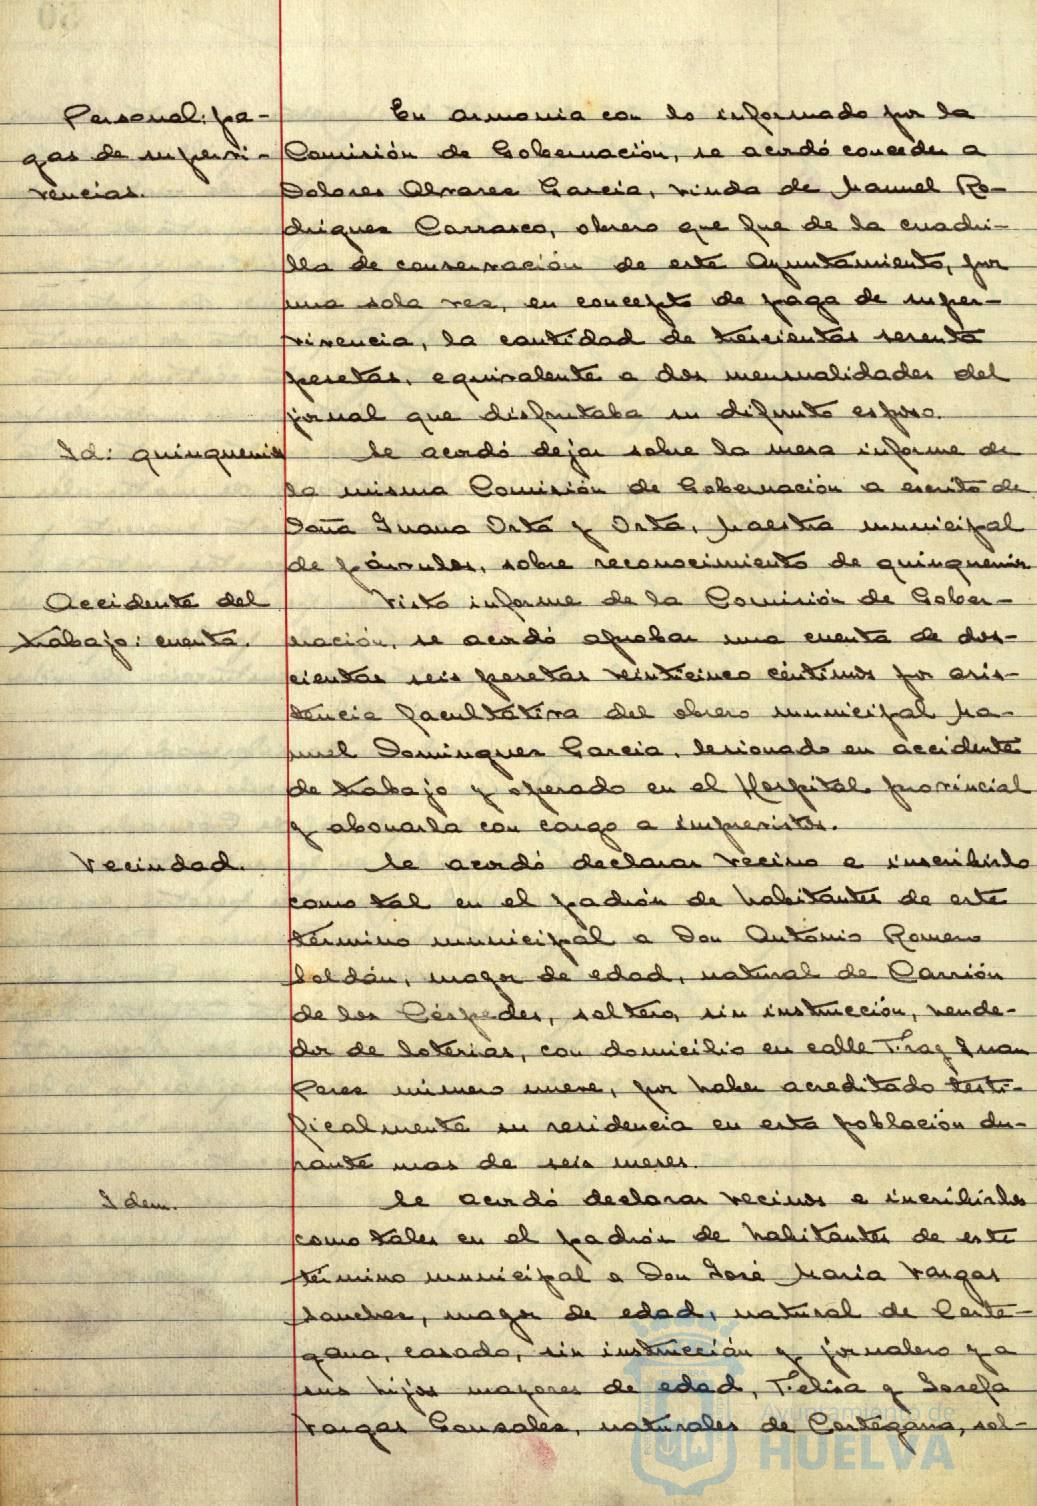 Personal: pa-
gas de supervi-
vencias.
En armonia con lo informado por la
Comisión de Gobernación, se acordó conceder a
Dolores Alvarez Garcia, viuda de Manuel Ro-
driguez Carrasco, obrero que fue de la cuadri-
lla de conservación de este Ayuntamiento, por
una sola vez, en concepto de paga de super-
vivencia, la cantidad de trescientas sesenta
pesetas, equivalente a dos mensualidades del
jornal que disfrutaba su difunto esposo.
Id: quinquenios
Se acordó dejar sobre la mesa informe de
la misma Comisión de Gobernación a escrito de
Doña Juana Orta y Orta, Maestra municipal
de párvulos, sobre reconocimiento de quinquenios
Accidente del
trabajo: cuenta.
Visto informe de la Comisión de Gober-
nación, se acordó aprobar una cuenta de dos-
cientas seis pesetas veinticinco céntimos por asis-
tencia facultativa del obrero municipal Ma-
nuel Dominguez Garcia, lesionado en accidente
de trabajo y operado en el Hospital provincial
y abonarla con cargo a imprevistos.
Vecindad.
Se acordó declarar vecino e inscribirlo
como tal en el padrón de habitantes de este
término municipal a Don Antonio Romero
Soldán, mayor de edad, natural de Carrión
de los Céspedes, soltero, sin instrucción, vende-
dor de loterias, con domicilio en calle Fray Juan
Perez número nueve, por haber acreditado testi-
ficalmente su residencia en esta población du-
rante mas de seis meses.
Idem.
Se acordó declarar vecinos e inscribirlos
como tales en el padrón de habitantes de este
término municipal a Don José Maria Vargas
Sanchez, mayor de edad, natural de Corte-
gana, casado, sin instrucción y jornalero y a
sus hijos mayores de edad, Felisa y Josefa
Vargas Gonzales, naturales de Cortegana, sol-
Ayuntamiento de
HUELVA